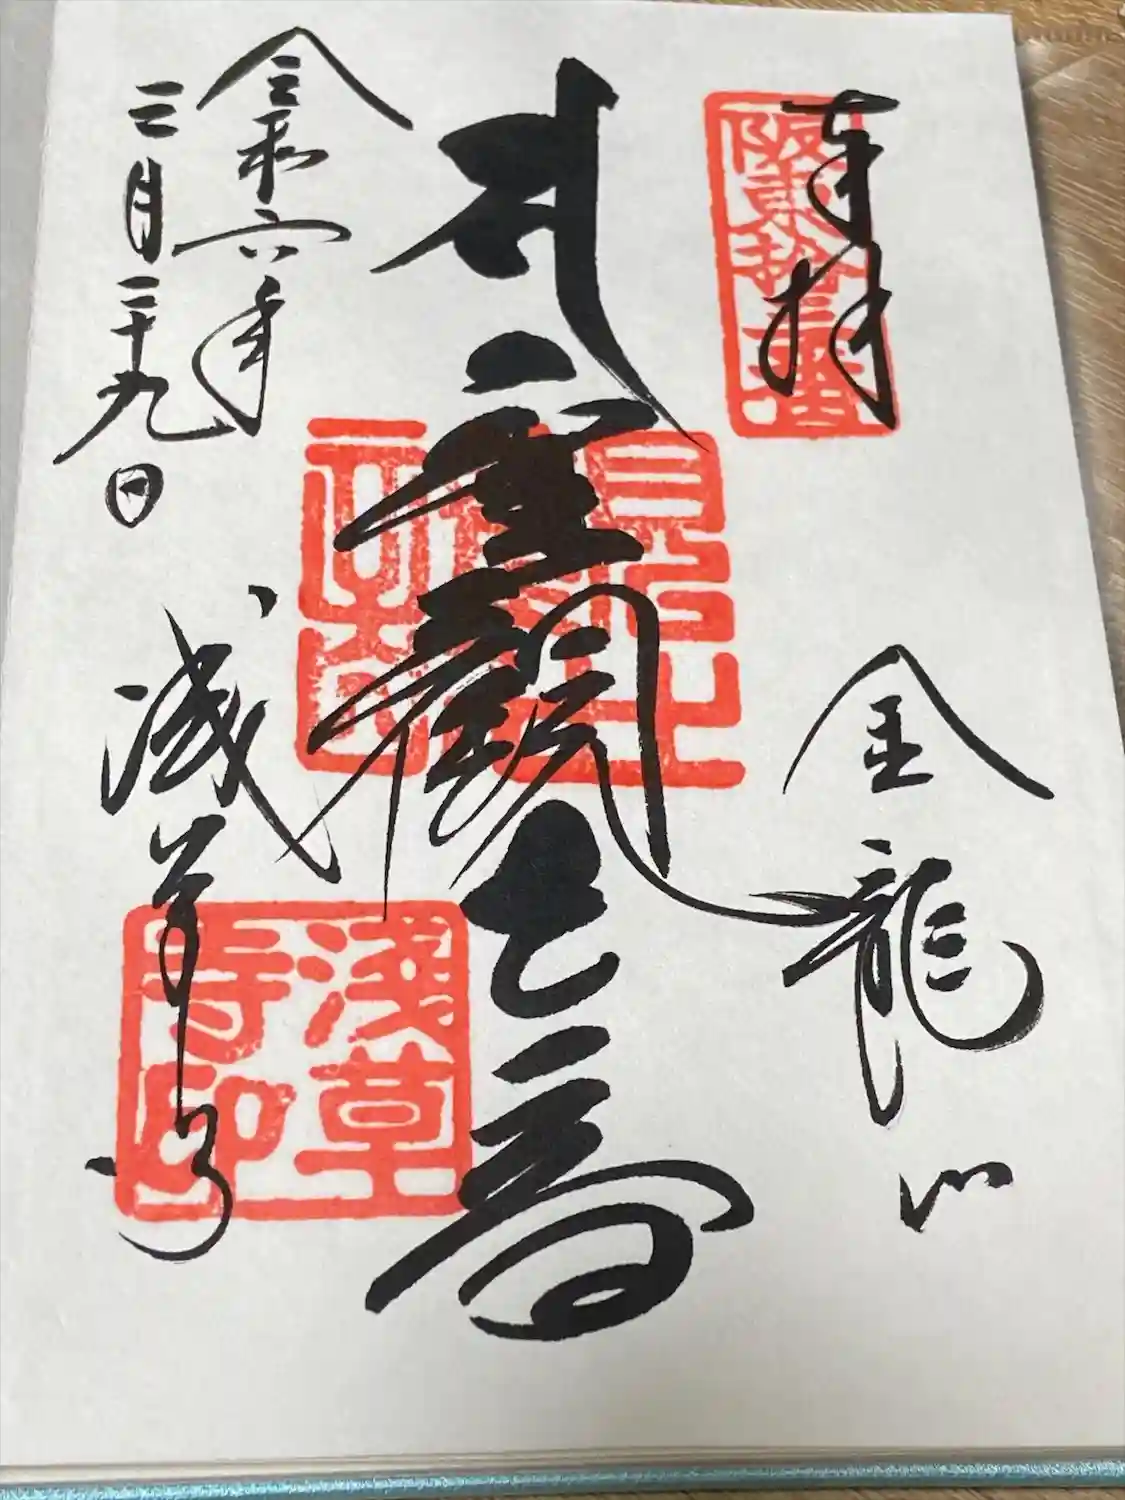 奉拝
阪東拾三番
金龍山
聖観世音
令和六年
三月二十九日
浅草寺
淺草寺印